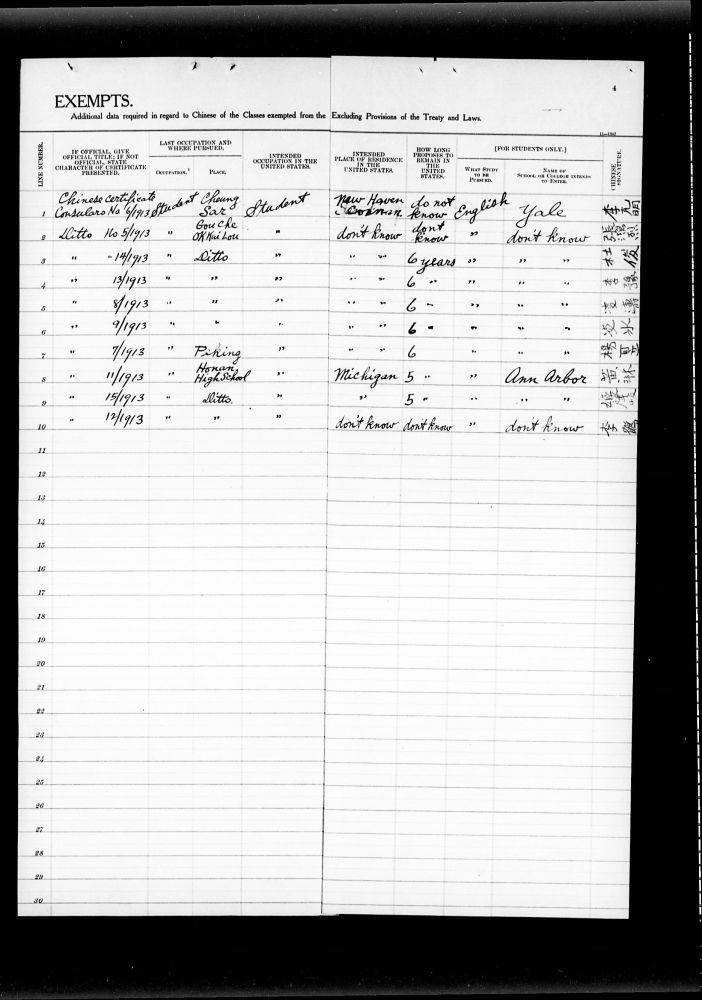 4
EXEMPTS.
Additional data required in regard to Chinese of the Classes exempted from the Excluding Provisions of the Treaty and Laws.
LINE NUMBER.
IF OFFICIAL, GIVE OFFICIAL TITLE; IF NOT OFFICIAL, STATE CHARACTER OF CERTIFICATE PRESENTED.
LAST OCCUPATION AND WHERE PURSUED.
OCCUPATION.
PLACE.
INTENDED OCCUPATION IN THE UNITED STATES.
INTENDED PLACE OF RESIDENCE IN THE UNITED STATES.
HOW LONG PROPOSES TO REMAIN IN THE UNITED STATES.
[FOR STUDENTS ONLY.]
WHAT STUDY TO BE PURSUED.
NAME OF SCHOOL OR COLLEGE INTENDS TO ENTER.
CHINESE SIGNATURE.
1 Chinese certificate Consulars No 6/1913 Student Cheung Sar Student New Haven Conn do not know English Yale 李元明
2 Ditto No 5/1913 " Gou Che " don't know dont know " don't know
3 " " 14/1913 " Ditto " " " 6 years " " " 杜俊
4 " 13/1913 " " " " " 6 " " " "
5 " 8/1913 " " " " " 6 " " " "
6 " 9/1913 " " " " " 6 " " " "
7 " 7/1913 " Piking " " " 6 " " "
8 " 11/1913 " Honan High School " Michigan 5 " " Ann Arbor
9 " 15/1913 " Ditto. " " 5 " " "
10 " 12/1913 " " " don't know don't know " don't know 李鶴
11
12
13
14
15
16
17
18
19
20
21
22
23
24
25
26
27
28
29
30